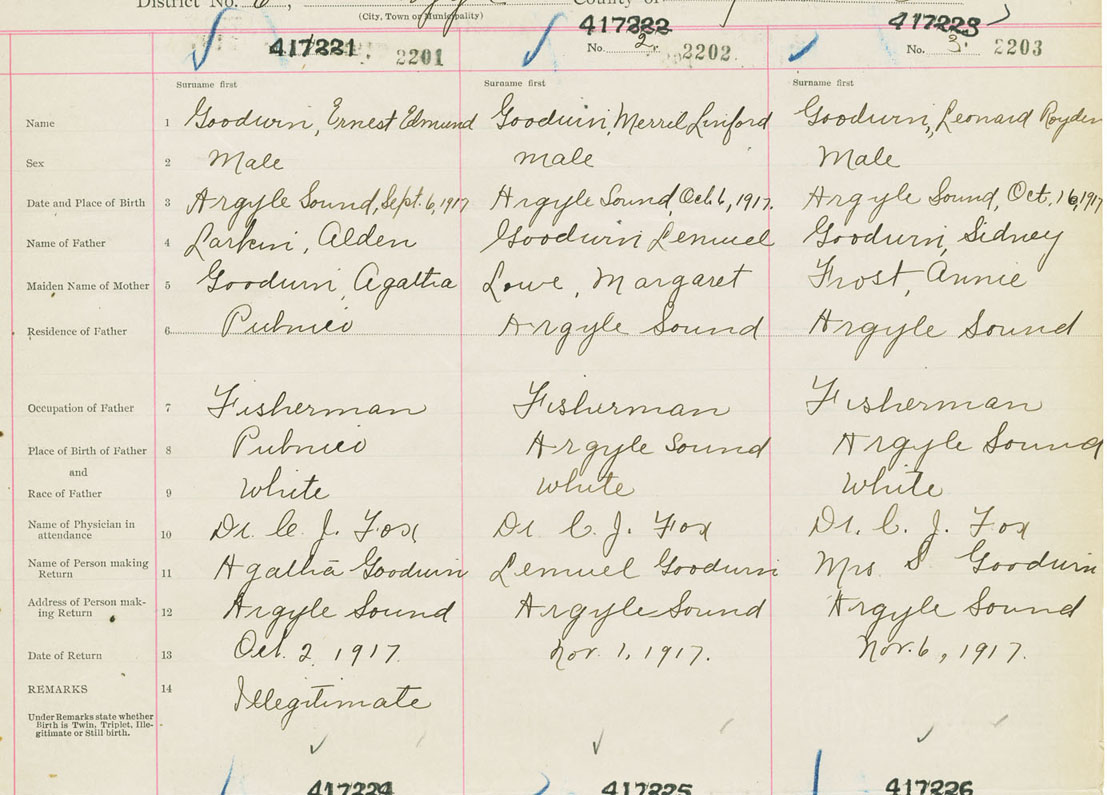 District No. 6,
County of
(City, Town or Municipality)
417221 2201
417222
No. 2. 2202
417223
No. 3. 2203
Surname first Surname first Surname first
Name 1 Goodwin, Ernest Edmund Goodwin, Merrel Linford Goodwin, Leonard Royden
Sex 2 Male male Male
Date and Place of Birth 3 Argyle Sound, Sept. 6, 1917 Argyle Sound, Oct. 6, 1917. Argyle Sound, Oct. 16, 1917
Name of Father 4 Larkin, Alden Goodwin Lemuel Goodwin, Sidney
Maiden Name of Mother 5 Goodwin, Agatha Lowe, Margaret Frost, Annie
Residence of Father 6 Pubnico Argyle Sound Argyle Sound
Occupation of Father 7 Fisherman Fisherman Fisherman
Place of Birth of Father 8 Pubnico Argyle Sound Argyle Sound
and
Race of Father 9 White White White
Name of Physician in
attendance 10 Dr. C. J. Fox Dr C. J. Fox Dr. C. J. Fox
Name of Person making
Return 11 Agatha Goodwin Lemuel Goodwin Mrs S Goodwin
Address of Person mak-
ing Return 12 Argyle Sound Argyle Sound Argyle Sound
Date of Return 13 Oct. 2, 1917. Nov. 1, 1917. Nov. 6, 1917.
REMARKS 14 Illegitimate
Under Remarks state whether
Birth is Twin, Triplet, Ille-
gitimate or Still birth.
417224 417225 417226